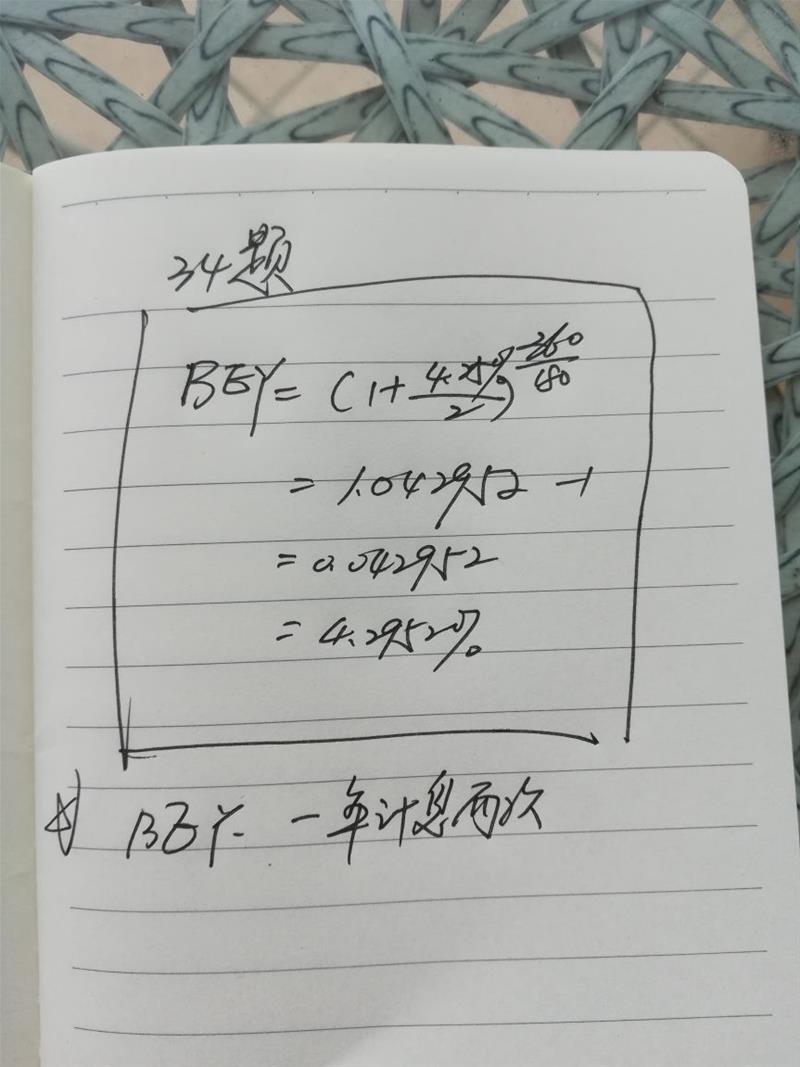 34题
BEY = (1+ 4.25%/2)^360/180
= 1.042952 -1
= 0.042952
= 4.2952%
BEY. 一年计息两次